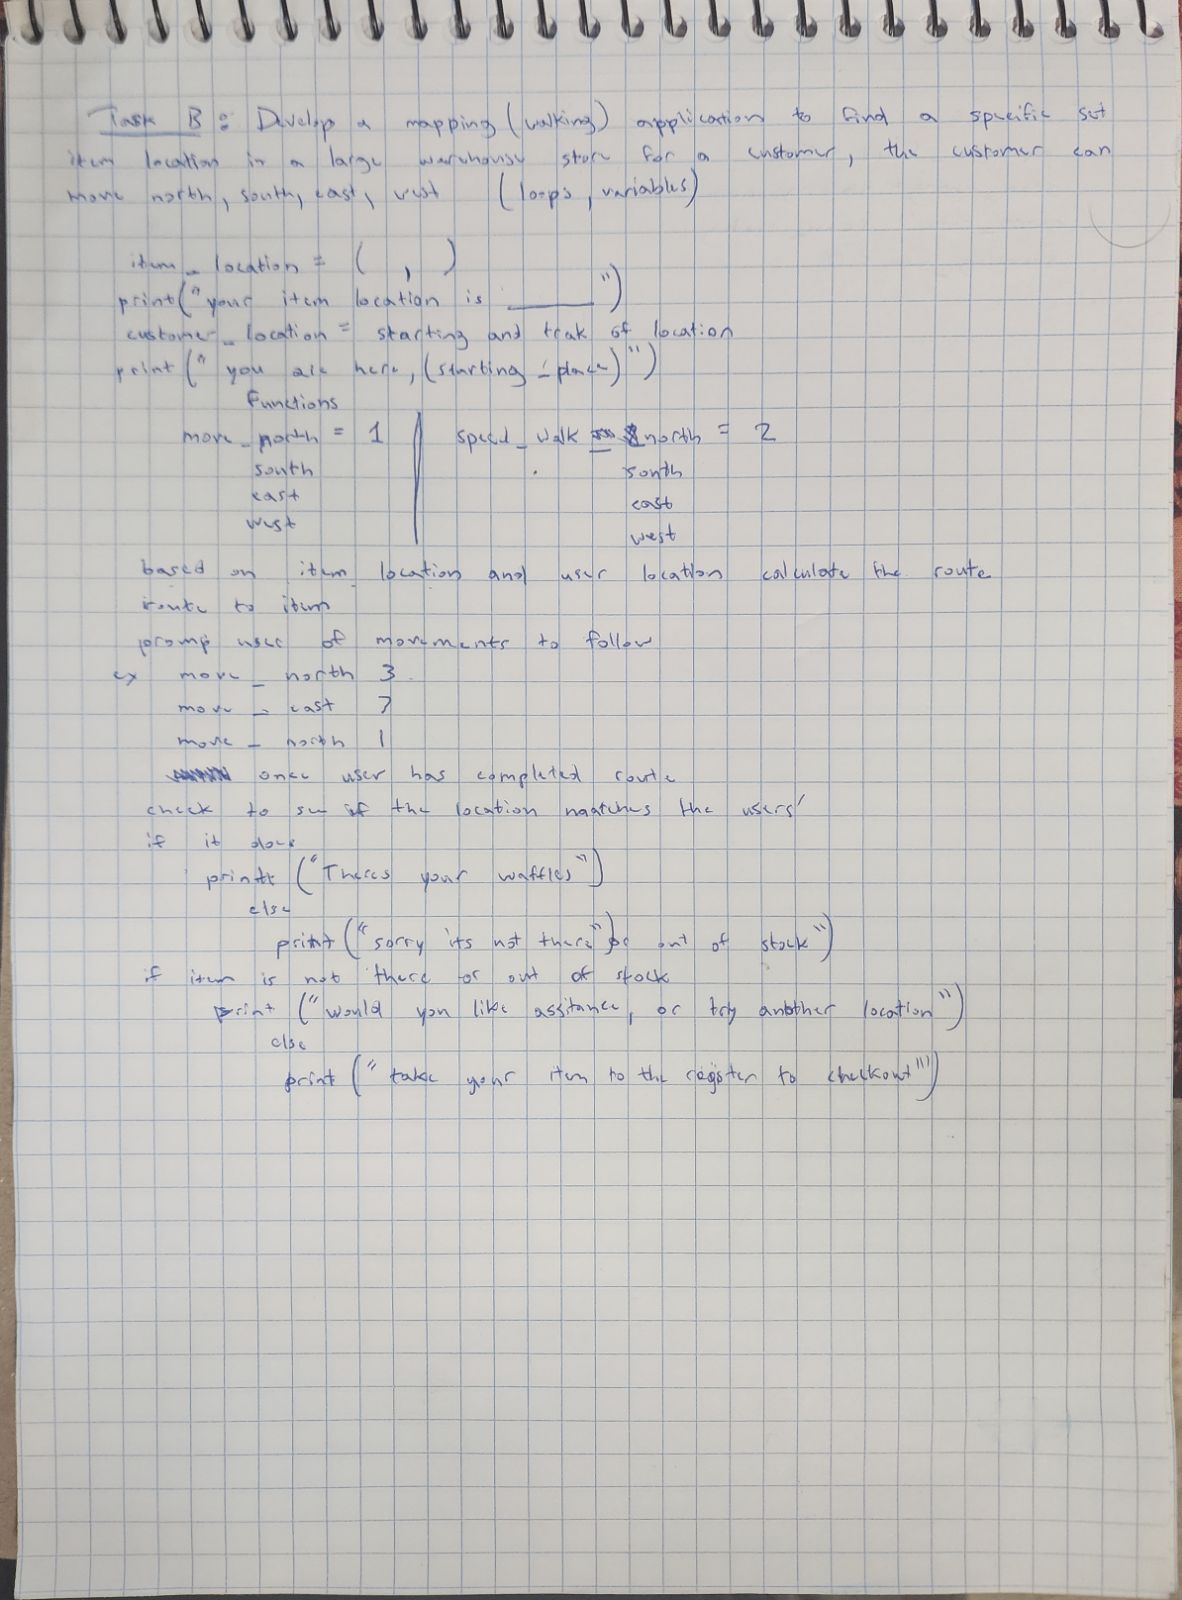 Task B: Develop a mapping (walking) application to find a specific set
item location in a large warehouse store for a customer, the customer can
move north, south, east, west (loops, variables)
item_location = ( , )
print("your item location is ______")
customer_location = starting and trak of location
print("you are here, (starting_place)")
Functions
move_north = 1 | speed_walk north = 2
south south
east east
west west
based on item location and user location calculate the route
route to item
promp user of movements to follow
ex move_north 3
move_east 7
move_north 1
once user has completed route
check to see if the location maatches the users'
if it does
print ("Theres your waffles")
else
print ("sorry its not there" or out of stock")
if item is not there or out of stock
print ("would you like assitance, or try another location")
else
print ("take your item to the register to checkout")